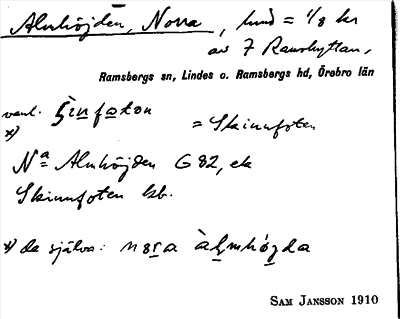 Almhöjden, Norra, hmd = 1/8 kr
av 7 Ramshyttan,
Ramsbergs sn, Lindes o. Ramsbergs hd, Örebro län
vanl. ʃinfoton
x) = Skinnfoten
Nª Almhöjden G 82, ek
Skinnfoten kb.
x) de själva: nora àlmhöjda
SAM JANSSON 1910